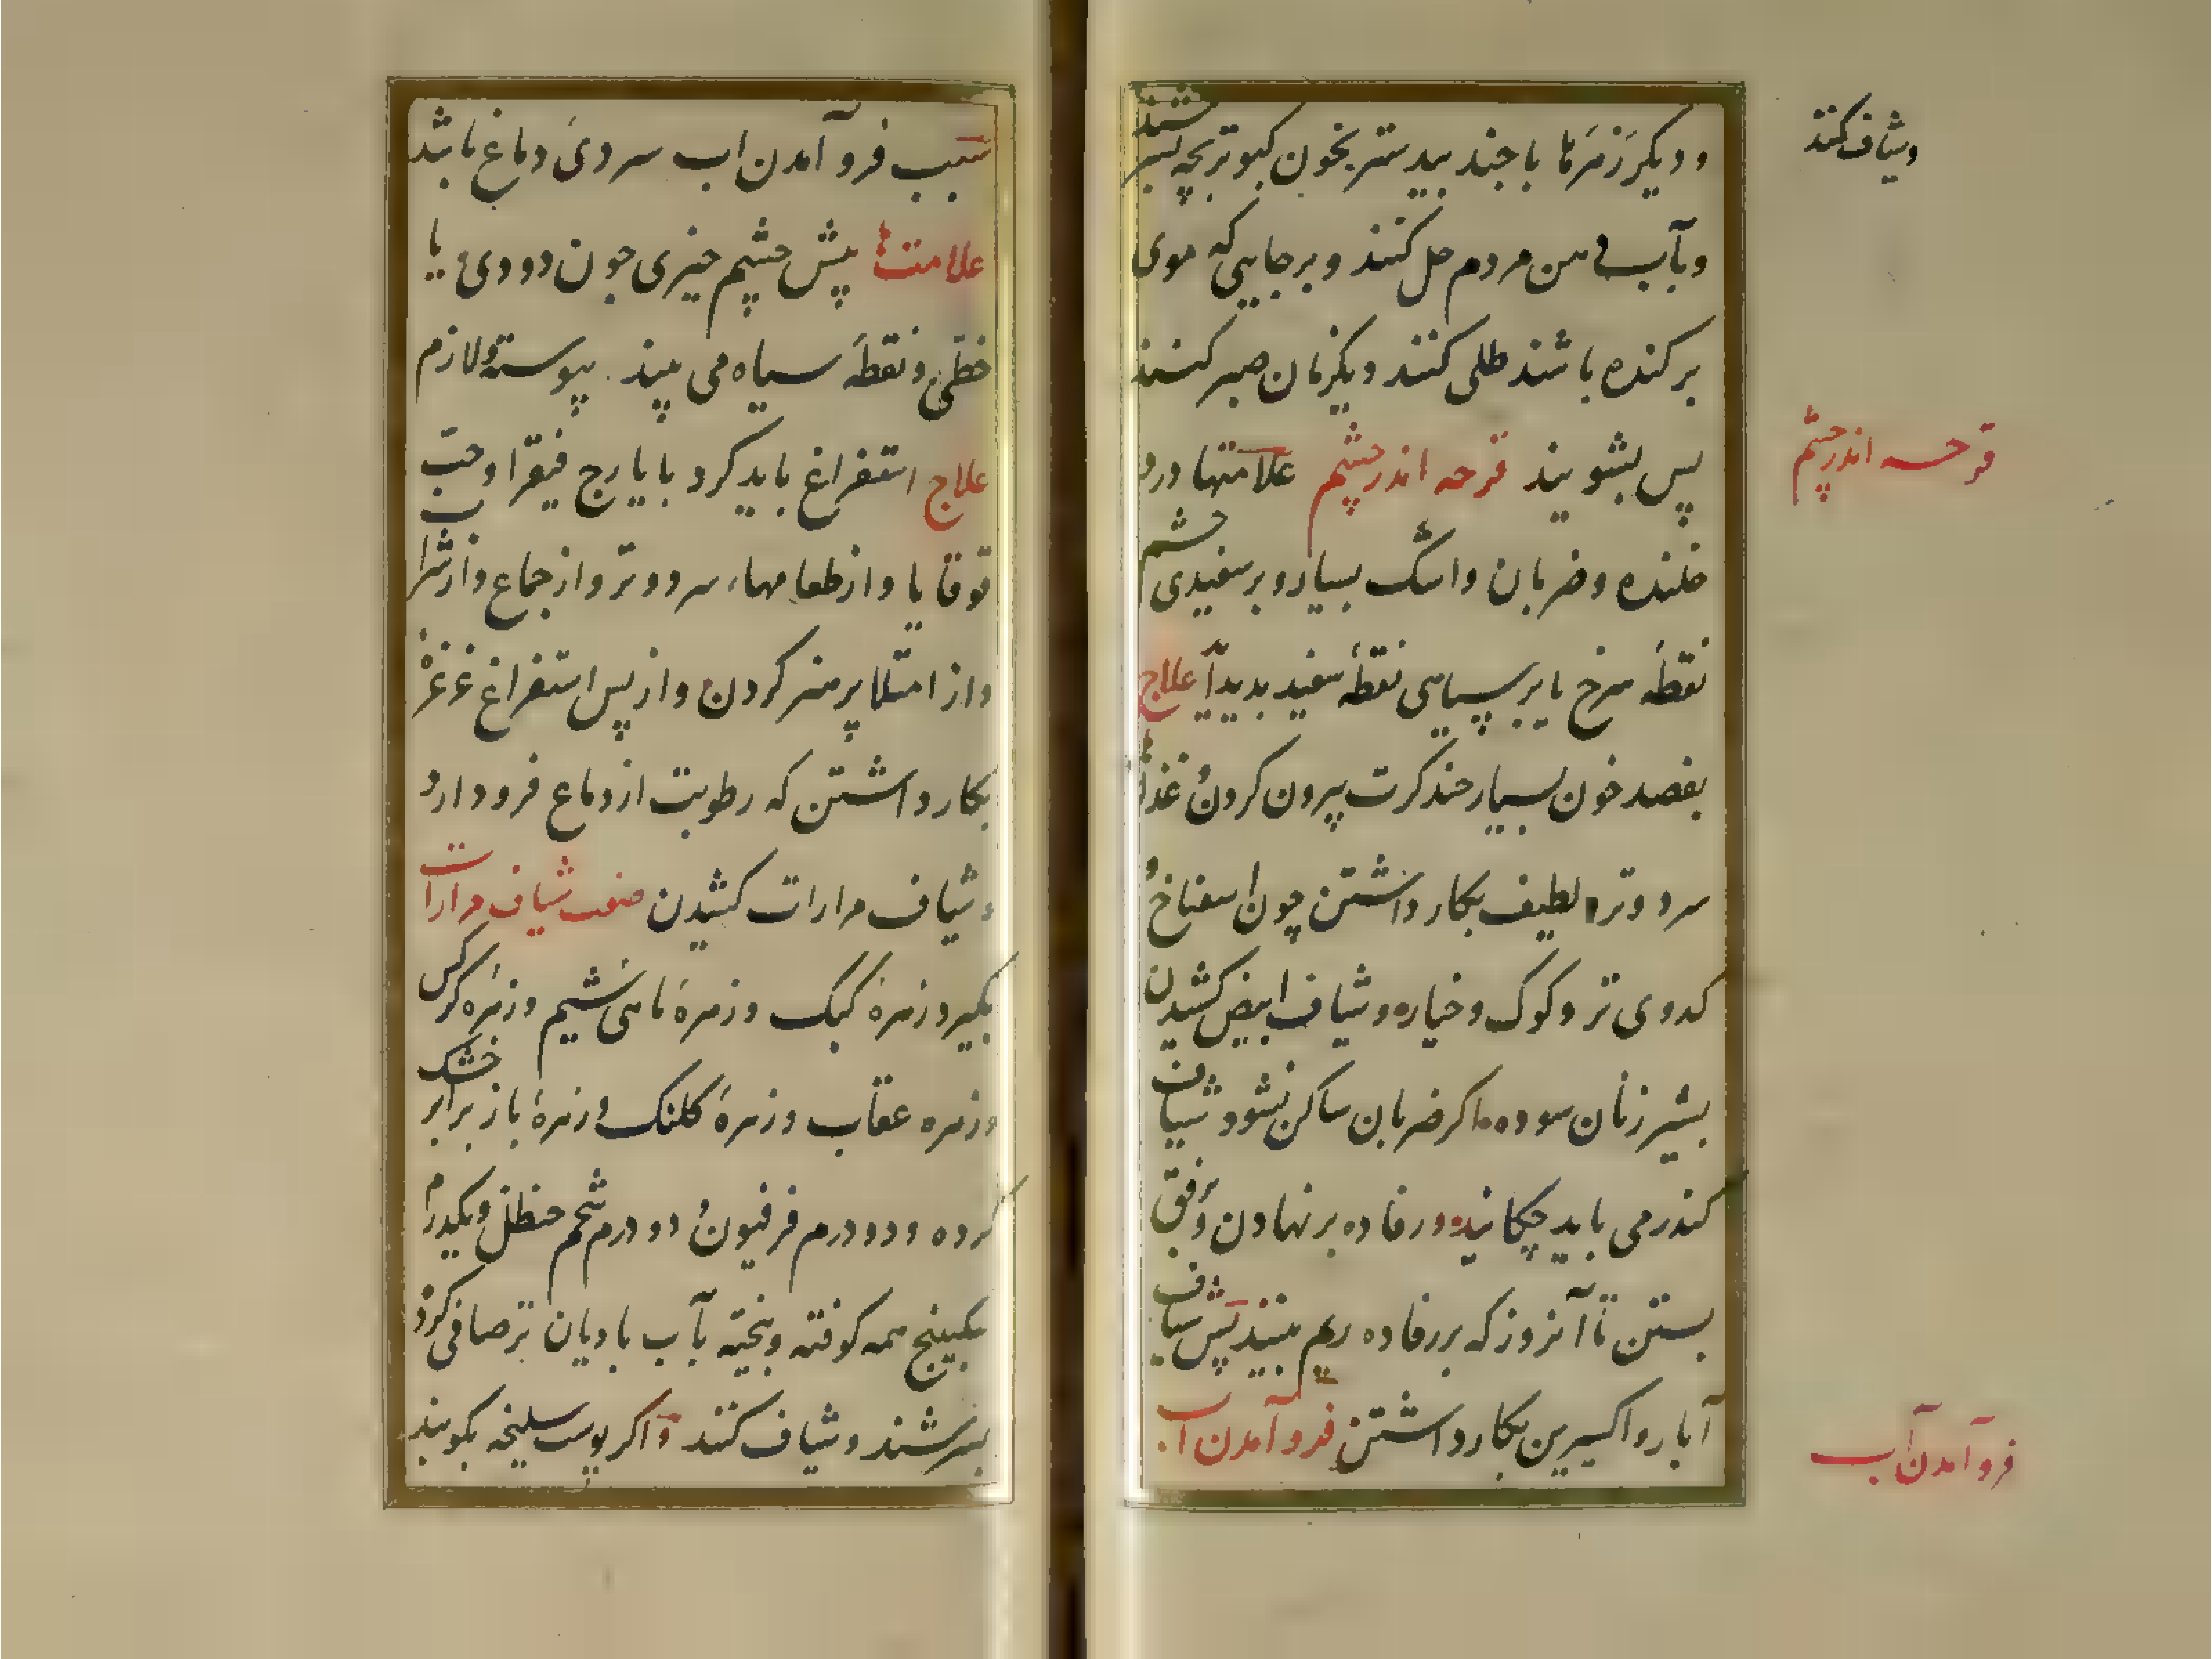 و دیکر زَهرَها با جند بیدستر بخون کبوتر بچه بسرشند
وبآب دهن مردم حل کنند و برجایی که موی
برکنده باشند طلی کنند ویکزمان صبر کنند
پس بشویند قرحه اندر چشم علامتها درد
خلنده و ضربان و اشک بسیار و بر سفیدی چشم
نقطهٔ سرخ یا بر سیاهی نقطهٔ سفید بدید آید علاج
بفصد خون بسیار جند کرت بیرون کردن و غذاها
سرد وتر لطیف بکار داشتن چون اسفناخ و
کدوی تر و کوک و خیاره و شیاف ابیض کشیدن
بشیر زنان سوده اکر ضربان ساکن نشود شیاف
کندر می باید چکانیده و رفاده برنهادن و برفق
بستن تا آنروز که بر رفاده ریم بینند پس شیاف
آبار و اکسیرین بکار داشتن فرو آمدن آب
وشیاف کنند
قرحه اندر چشم
فرو آمدن آب
سبب فرو آمدن اب سردیَ دماغ باشد
علامتها پیش چشم جیزی جون دودیء یا
خطّی و نقطهٔ سیاه می بیند پیوسته و لازم
علاج استفراغ باید کرد بایارج فیقرا وحبّ
قوقایا و از طعامهاء سرد و تر و از جماع و از شراب
و از امتلا پرهیز کردن و از پس استفراغ غرغره
بکار داشتن که رطوبت از دماغ فرود ارد
و شیاف مرارات کشیدن صفت شیاف مرارات
بکیرد زهرهٔ کبک و زهرهٔ ماهی شیم و زهره کرکس
و زهره عقاب و زهرهٔ کلنک و زهرهٔ باز برابر خشک
کرده و دو درم فرفیون و دو درم شحم حنظل و یکدرم
سکبینج همه کوفته و بیخته بآب بادیان تر صافی کرده
بسرشند و شیاف کنند و اکر پوست سلیخه بکوبند